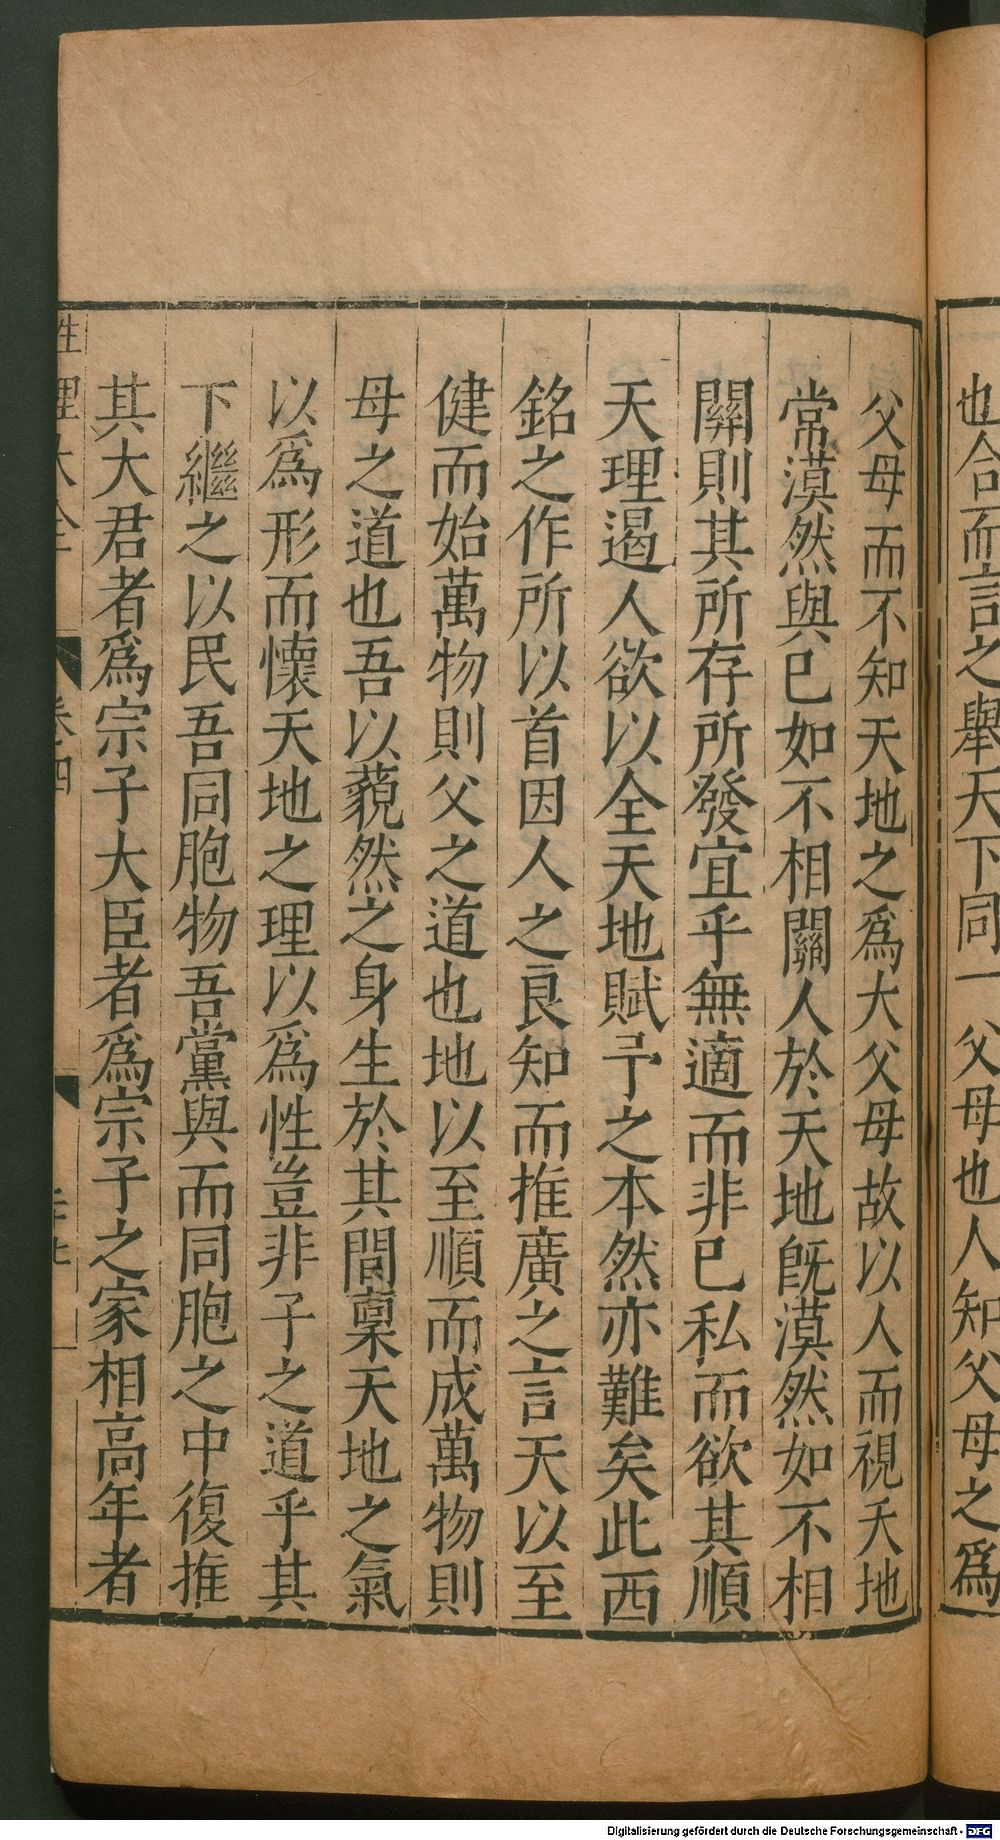 也合而言之舉天下同一父母也人知父母之爲
父母而不知天地之爲大父母故以人而視天地
常漠然與已如不相關人於天地旣漠然如不相
關則其所存所發宜乎無適而非已私而欲其順
天理遏人欲以全天地賦予之本然亦難矣此西
銘之作所以首因人之良知而推廣之言天以至
健而始萬物則父之道也地以至順而成萬物則
母之道也吾以藐然之身生於其間禀天地之氣
以爲形而懷天地之理以爲性豈非子之道乎其
下繼之以民吾同胞物吾黨與而同胞之中復推
其大君者爲宗子大臣者爲宗子之家相高年者
性理大全 卷四
Digitalisierung gefördert durch die Deutsche Forschungsgemeinschaft - DFG